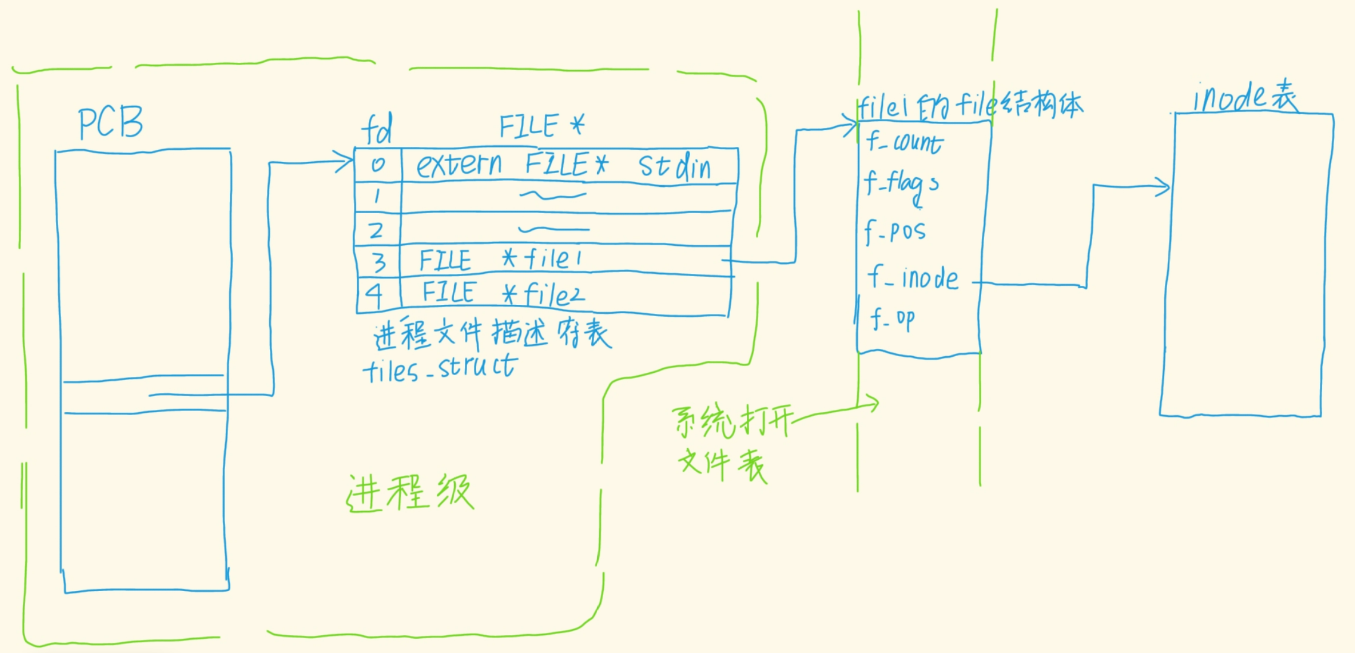 PCB
fd
FILE *
0
extern FILE* stdin
1
2
3
FILE *file1
4
FILE *file2
进程文件描述符表
files_struct
进程级
file1的file结构体
f_count
f_flags
f_pos
f_inode
f_op
系统打开
文件表
inode表